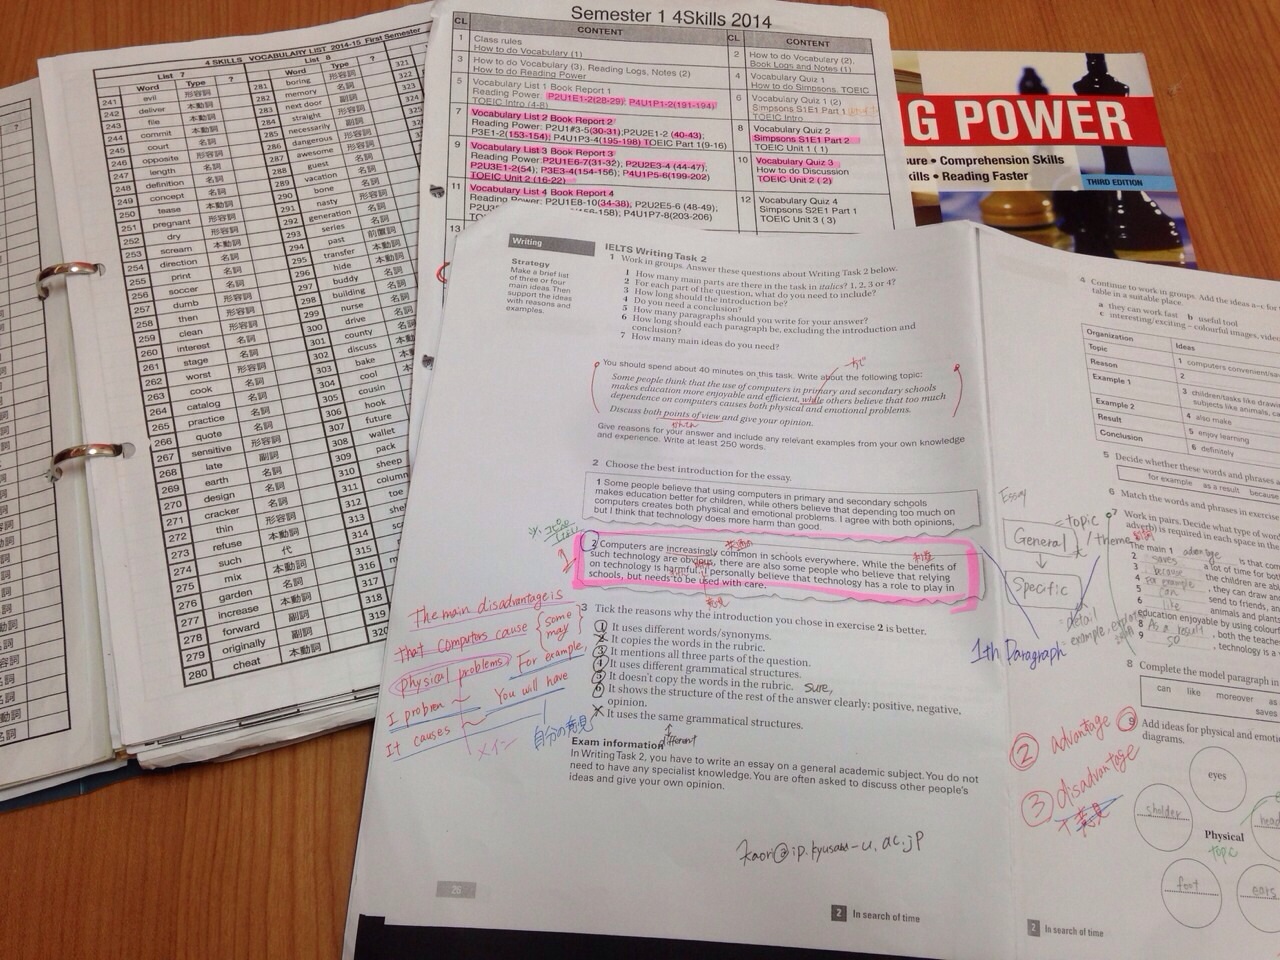 4 SKILLS VOCABULARY LIST 2014-15 First Semester
List 7 Type ? List 8 Type ?
Word Word
241 evil 形容詞
242 deliver 本動詞
243 file 本動詞
244 commit 本動詞
245 court 名詞
246 opposite 形容詞
247 length 名詞
248 definition 名詞
249 concept 名詞
250 tease 本動詞
251 pregnant 形容詞
252 dry 形容詞
253 scream 本動詞
254 direction 名詞
255 print 名詞
256 soccer 名詞
257 dumb 形容詞
258 then
259 clean 形容詞
260 interest 名詞
261 stage 名詞
262 worst 形容詞
263 cook 名詞
264 catalog 名詞
265 practice 名詞
266 quote 名詞
267 sensitive 形容詞
268 late 副詞
269 earth 名詞
270 design 名詞
271 cracker 名詞
272 thin 形容詞
273 refuse 本動詞
274 such 代
275 mix 名詞
276 garden 名詞
277 increase 本動詞
278 forward 副詞
279 originally 副詞
280 cheat 本動詞
281 boring 形容詞
282 memory 名詞
283 next door 副詞
284 straight 形容詞
285 necessarily 副詞
286 dangerous 形容詞
287 awesome 形容詞
288 guest 名詞
289 vacation 名詞
290 bone 名詞
291 nasty 形容詞
292 generation 名詞
293 series 名詞
294 past 前置詞
295 transfer 本動詞
296 hide 本動詞
297 buddy 名詞
298 building 名詞
299 nurse 名詞
300 drive
301 county
302 discuss
303 bake
304 cool
305 cousin
306 hook
307 future
308 wallet
309 pack
310 sheep
311 column
312 shoe
313 toe
314
315
316
317
318
319
320
321
322
323
324
Semester 1 4Skills 2014
CL CONTENT CL CONTENT
1 Class rules
How to do Vocabulary (1)
2 How to do Vocabulary (2),
Book Logs and Notes (1)
3 How to do Vocabulary (3), Reading Logs, Notes (2)
How to do Reading Power
4 Vocabulary Quiz 1
How to do Simpsons, TOEIC
5 Vocabulary List 1 Book Report 1
Reading Power: P2U1E1-2(28-29); P4U1P1-2(191-194)
TOEIC Intro (4-8)
6 Vocabulary Quiz 1 (2)
Simpsons S1E1 Part 1
TOEIC Intro
7 Vocabulary List 2 Book Report 2
Reading Power: P2U1#3-5(30-31);P2U2E1-2 (40-43);
P3E1-2(153-154); P4U1P3-4(195-198) TOEIC Part 1(9-16)
8 Vocabulary Quiz 2
Simpsons S1E1 Part 2
TOEIC Unit 1 ( 1)
9 Vocabulary List 3 Book Report 3
Reading Power: P2U1E6-7(31-32); P2U2E3-4 (44-47);
P2U3E1-2(54); P3E3-4(154-156); P4U1P5-6(199-202)
TOEIC Unit 2 (16-22)
10 Vocabulary Quiz 3
How to do Discussion
TOEIC Unit 2 ( 2)
11 Vocabulary List 4 Book Report 4
Reading Power: P2U1E8-10(34-38), P2U2E5-6 (48-49);
-158); P4U1P7-8(203-206)
12 Vocabulary Quiz 4
Simpsons S2E1 Part 1
TOEIC Unit 3 ( 3)
13
G POWER
ure • Comprehension Skills
kills • Reading Faster
THIRD EDITION
Writing
Strategy
Make a brief list
of three or four
main ideas. Then
support the ideas
with reasons and
examples.
IELTS Writing Task 2
1 Work in groups. Answer these questions about Writing Task 2 below.
1 How many main parts are there in the task in italics? 1, 2, 3 or 4?
2 For each part of the question, what do you need to include?
3 How long should the introduction be?
4 Do you need a conclusion?
5 How many paragraphs should you write for your answer?
6 How long should each paragraph be, excluding the introduction and
conclusion?
7 How many main ideas do you need?
You should spend about 40 minutes on this task. Write about the following topic:
Some people think that the use of computers in primary and secondary schools
makes education more enjoyable and efficient, while others believe that too much
dependence on computers causes both physical and emotional problems.
Discuss both points of view and give your opinion.
Give reasons for your answer and include any relevant examples from your own knowledge
and experience. Write at least 250 words.
2 Choose the best introduction for the essay.
1 Some people believe that using computers in primary and secondary schools
makes education better for children, while others believe that depending too much on
computers creates both physical and emotional problems. I agree with both opinions,
but I think that technology does more harm than good.
2 Computers are increasingly common in schools everywhere. While the benefits of
such technology are obvious, there are also some people who believe that relying
on technology is harmful. I personally believe that technology has a role to play in
schools, but needs to be used with care.
3 Tick the reasons why the introduction you chose in exercise 2 is better.
1 It uses different words/synonyms.
2 It copies the words in the rubric.
3 It mentions all three parts of the question.
4 It uses different grammatical structures.
5 It doesn't copy the words in the rubric. sure,
6 It shows the structure of the rest of the answer clearly: positive, negative,
opinion.
It uses the same grammatical structures.
different
Exam information
In Writing Task 2, you have to write an essay on a general academic subject. You do not
need to have any specialist knowledge. You are often asked to discuss other people's
ideas and give your own opinion.
The main disadvantage is
that computers cause some may
physical problems. For example,
I problem You will have
It causes
メイン
自分の意見
kaori@ip.kyusan-u.ac.jp
26
2 In search of time
4 Continue to work in groups. Add the ideas a–c
table in a suitable place.
a they can work fast b useful tool
c interesting/exciting – colourful images, video
Organization Ideas
Topic 1 computers convenient/
Reason 2
Example 1 3 children/tasks like draw
subjects like animals,
Example 2 4 also make
Result 5 enjoy learning
Conclusion 6 definitely
5 Decide whether these words and phrases
for example as a result because
6 Match the words and phrases in exercise
7 Work in pairs. Decide what type of word
adverb) is required in each space in the
The main 1 advantage is that com
2 saves a lot of time for both
3 because the children are able
4 For example, they can draw and
5 can send to friends, an
6 like animals and plants
education enjoyable by using colou
8 As a result, both the teache
9 so, technology is a
8 Complete the model paragraph in
can like moreover as
saves
9 Add ideas for physical and emotio
diagrams.
eyes
sholder
head
Physical
topic
foot
ears
Essay
General = topic / theme
Specific
detail
example,
1th Paragraph
② advantage
③ disadvantage
2 In search of time